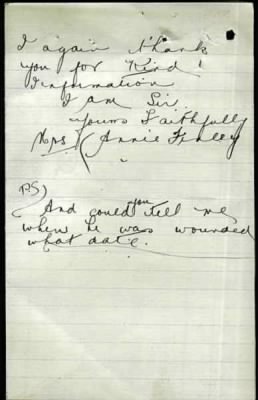 I again thank
you for Kind
Information
I am Sir
Yours Faithfully
Mrs (Annie Finley
PS)
And could you tell me
where he was wounded
what date.